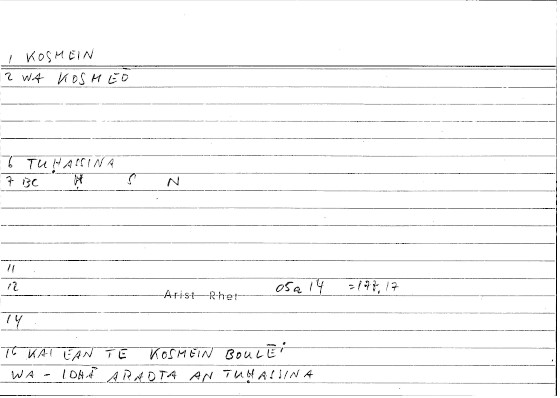 1 KOSMEIN
2 WA KOSMEŌ
6 TUḤASSINA
7 BC Ḥ S N
11
12 Arist Rhet 05a 14 =178,17
14
16 KAI EAN TE KOSMEIN BOULĒI
WA-IDHĀ ARADTA AN TUḤASSINA